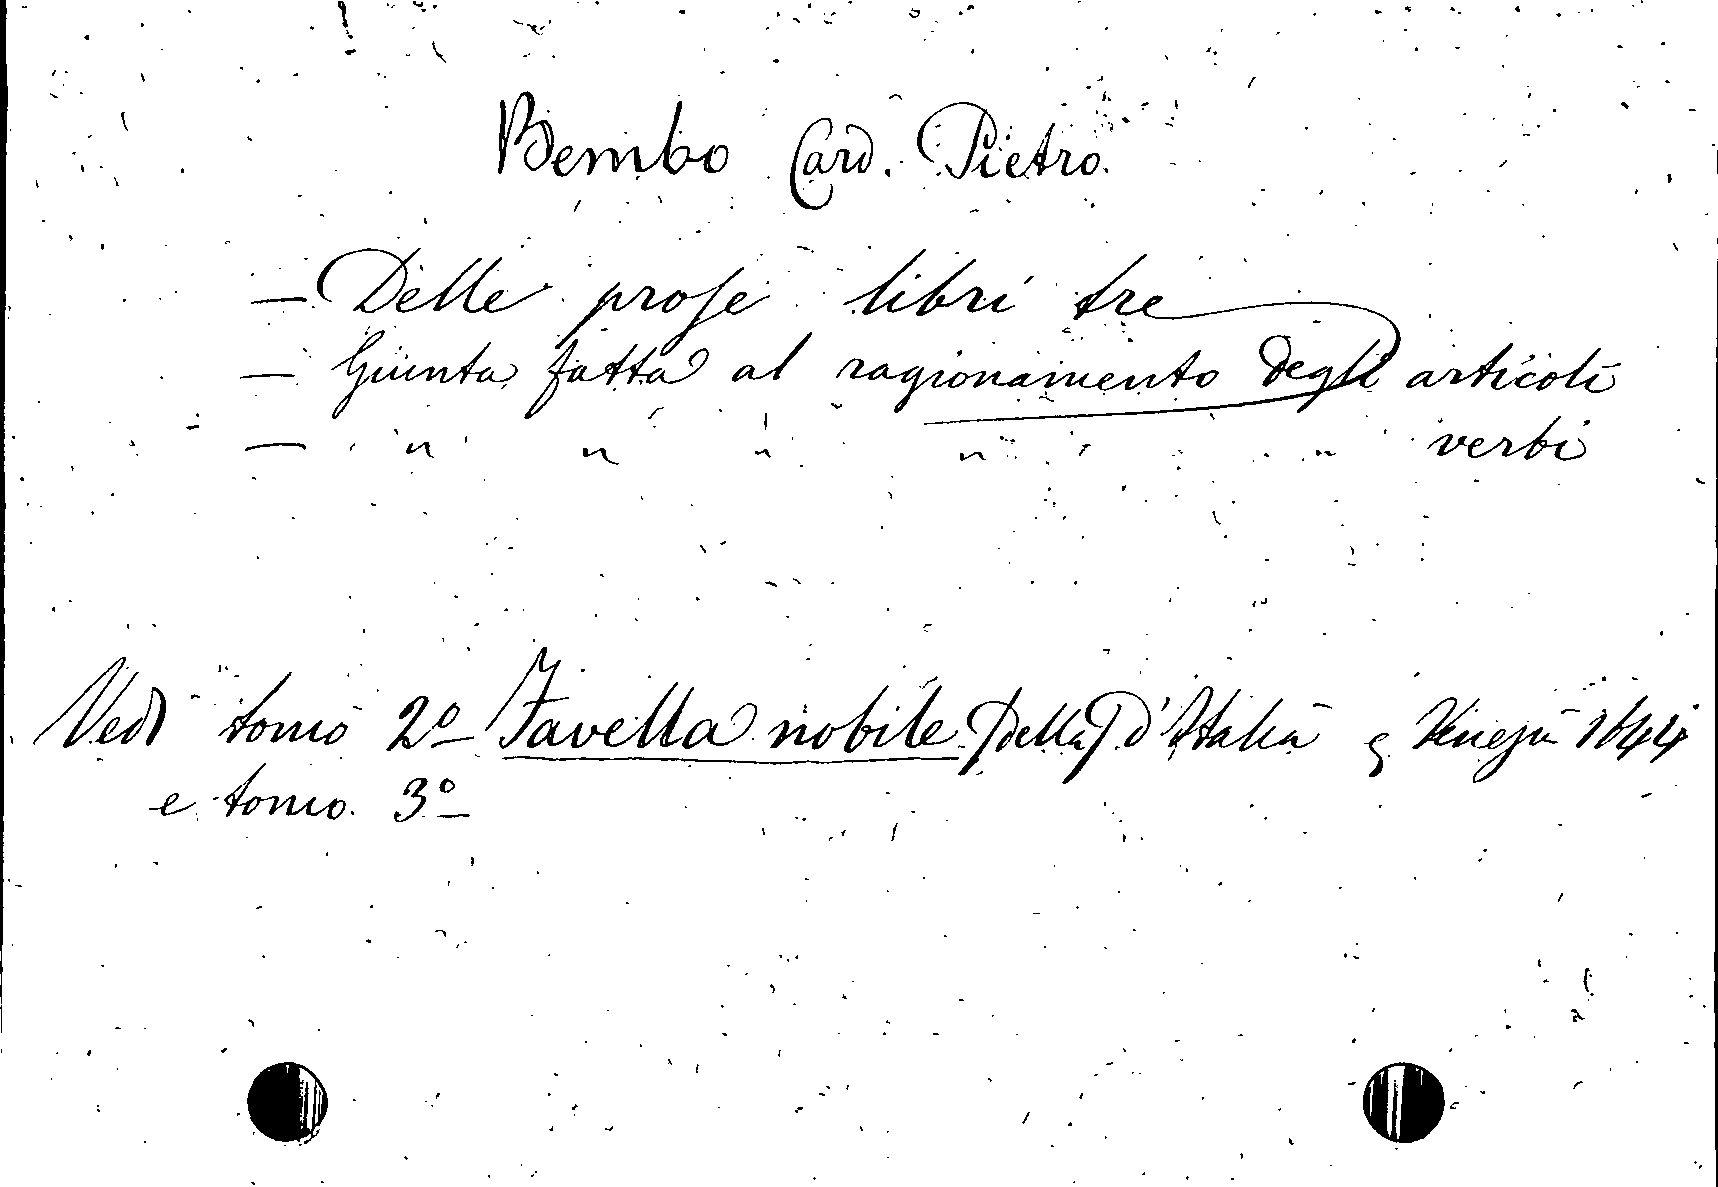 Bembo Card. Pietro.
— Delle prose libri tre
— Giunta fatta al ragionamento degli articoli
— " " " " " verbi
Vedi tomo 2º Favella nobile (della) d'Italia Venezia 1644
e tomo 3º